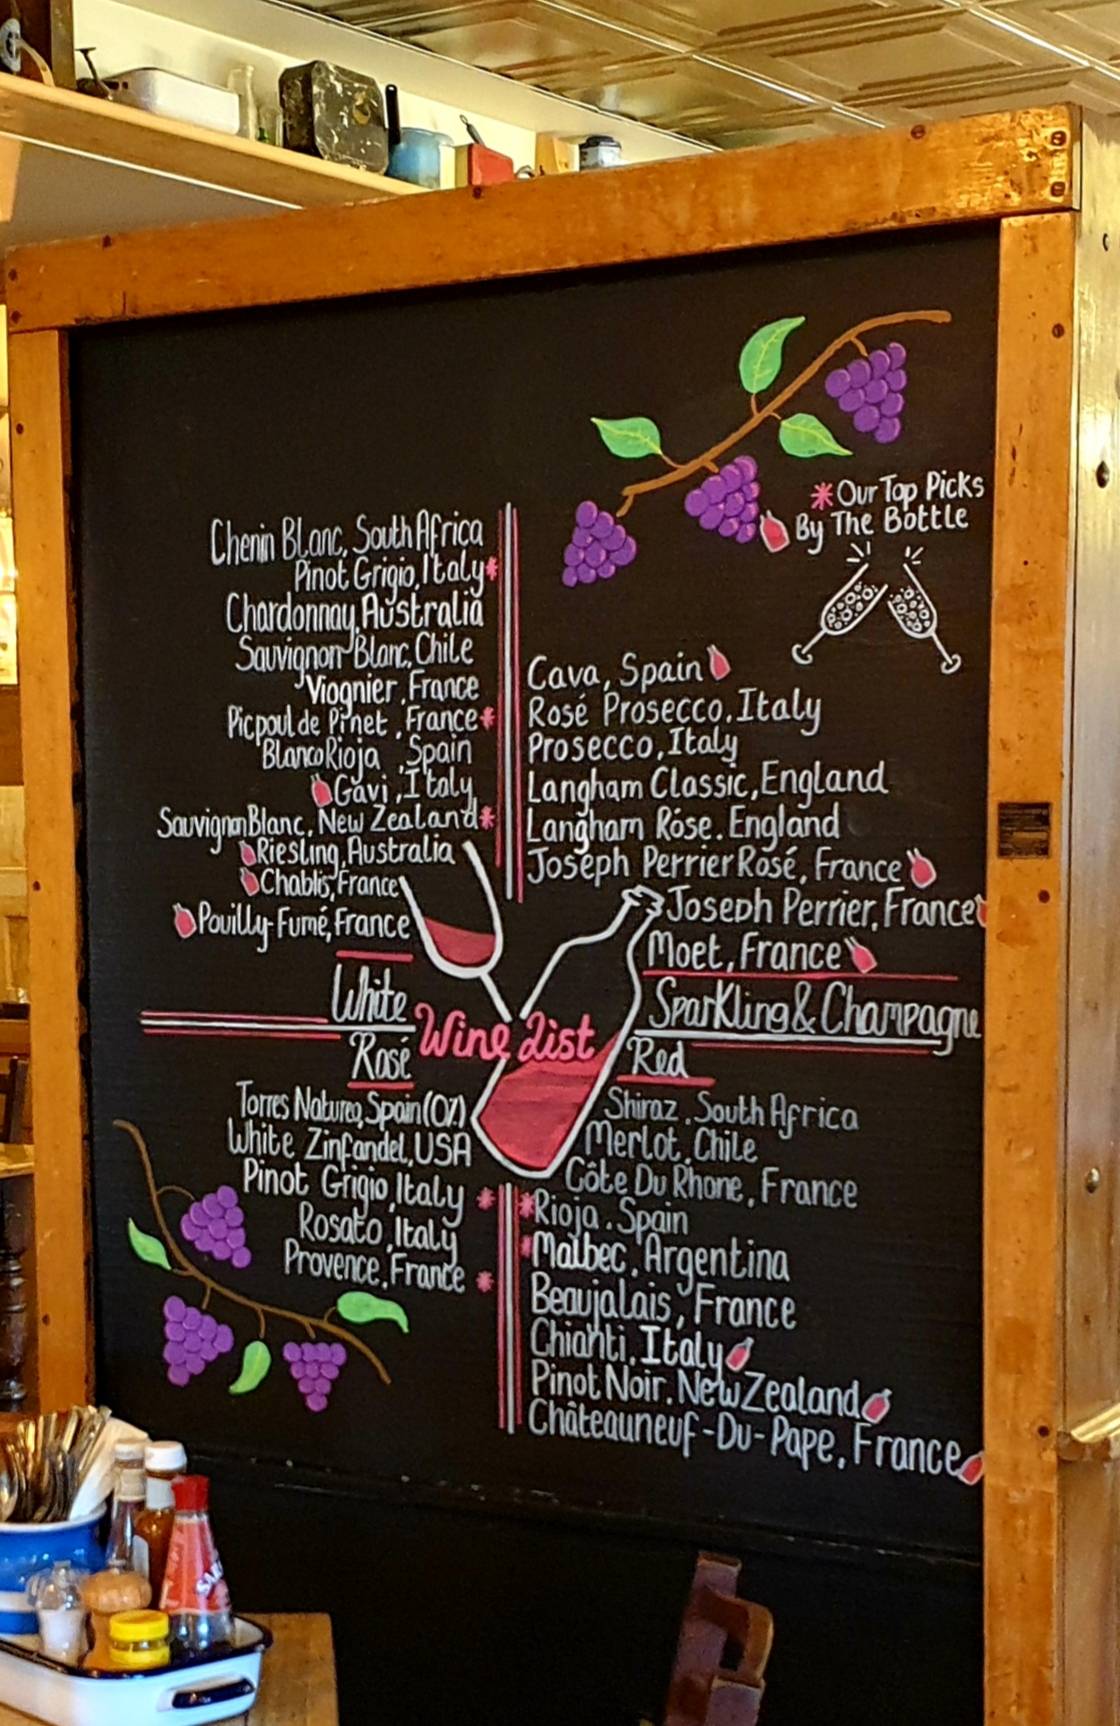 *Our Top Picks
By The Bottle
Chenin Blanc, South Africa
Pinot Grigio, Italy*
Chardonnay, Australia
Sauvignon Blanc, Chile
Viognier, France
Picpoul de Pinet, France*
Blanco Rioja, Spain
Gavi, Italy
Sauvignon Blanc, New Zealand*
Riesling, Australia
Chablis, France
Pouilly-Fumé, France
White
Cava, Spain
Rosé Prosecco. Italy
Prosecco, Italy
Langham Classic, England
Langham Róse. England
Joseph Perrier Rosé, France
Joseph Perrier, France
Moet, France
Sparkling & Champagne
Wine List
Rosé
Torres Naturea, Spain (0%)
White Zinfandel, USA
Pinot Grigio, Italy *
Rosato, Italy
Provence, France *
Red
Shiraz. South Africa
Merlot, Chile
Côte Du Rhone, France
*Rioja. Spain
*Malbec, Argentina
Beaujalais, France
Chianti. Italy
Pinot Noir. New Zealand
Châteauneuf-Du-Pape, France